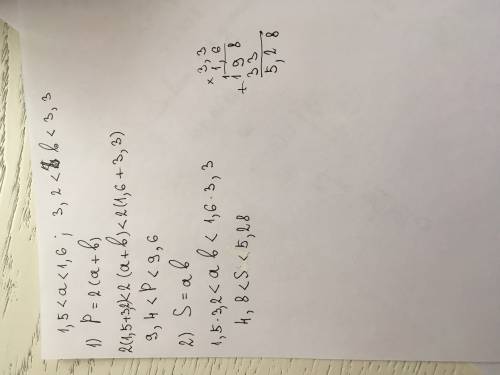 1,5 < a < 1,6 ; 3,2 < b < 3,3
1) P = 2(a+b),
2(1,5+3,2) < 2(a+b) < 2(1,6+3,3)
9,4 < P < 9,6
2) S = ab
1,5·3,2 < ab < 1,6·3,3
4,8 < S < 5,28
× 3,3
1,6
+ 198
33
5,28